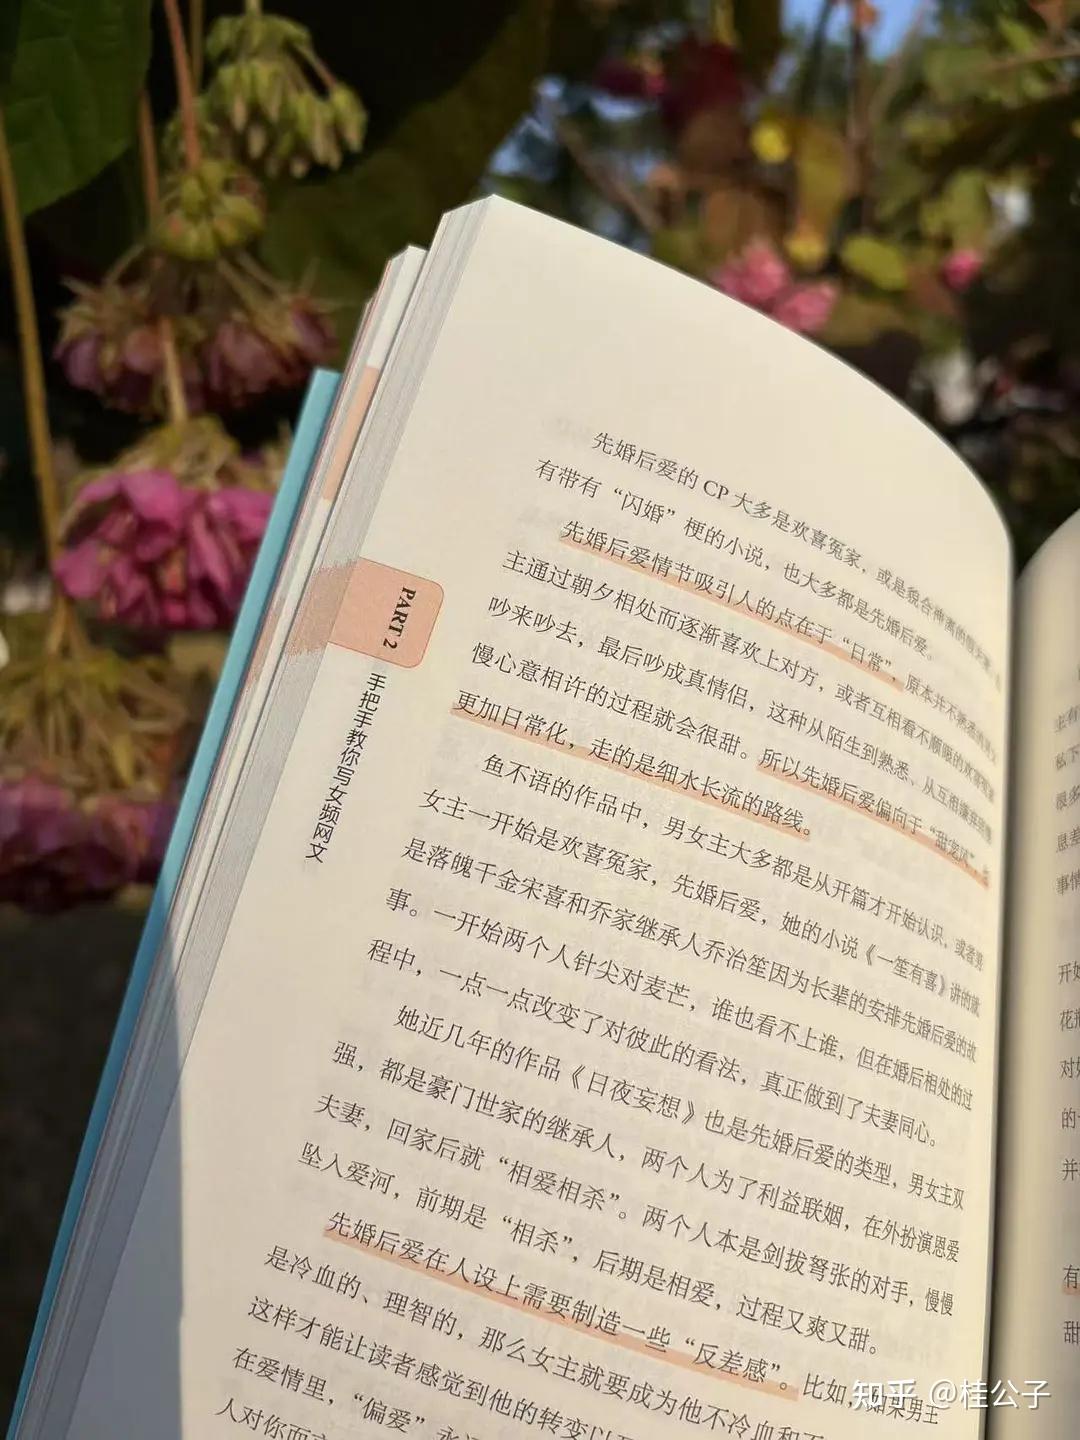 先婚后爱的 CP 大多是欢喜冤家，或是貌合神离的
有带有“闪婚”梗的小说，也大多都是先婚后爱。
先婚后爱情节吸引人的点在于“日常”，原本并不熟悉的男女
主通过朝夕相处而逐渐喜欢上对方，或者互相看不顺眼的欢喜冤家
吵来吵去，最后吵成真情侣，这种从陌生到熟悉、从互相嫌弃到慢
慢心意相许的过程就会很甜。所以先婚后爱偏向于“甜宠风”，
更加日常化，走的是细水长流的路线。
鱼不语的作品中，男女主大多都是从开篇才开始认识，或者男
女主一开始是欢喜冤家，先婚后爱，她的小说《一笙有喜》讲的就
是落魄千金宋喜和乔家继承人乔治笙因为长辈的安排先婚后爱的故
事。一开始两个人针尖对麦芒，谁也看不上谁，但在婚后相处的过
程中，一点一点改变了对彼此的看法，真正做到了夫妻同心。
她近几年的作品《日夜妄想》也是先婚后爱的类型，男女主双
强，都是豪门世家的继承人，两个人为了利益联姻，在外扮演恩爱
夫妻，回家后就“相爱相杀”。两个人本是剑拔弩张的对手，慢慢
坠入爱河，前期是“相杀”，后期是相爱，过程又爽又甜。
先婚后爱在人设上需要制造一些“反差感”。比如，如果男主
是冷血的、理智的，那么女主就要成为他不冷血和不
这样才能让读者感觉到他的转变以
在爱情里，“偏爱”永
人对你而言
PART 2
手把手教你写女频网文
私下
很多
事情
开始
对
的
并
有
甜
知乎 @桂公子